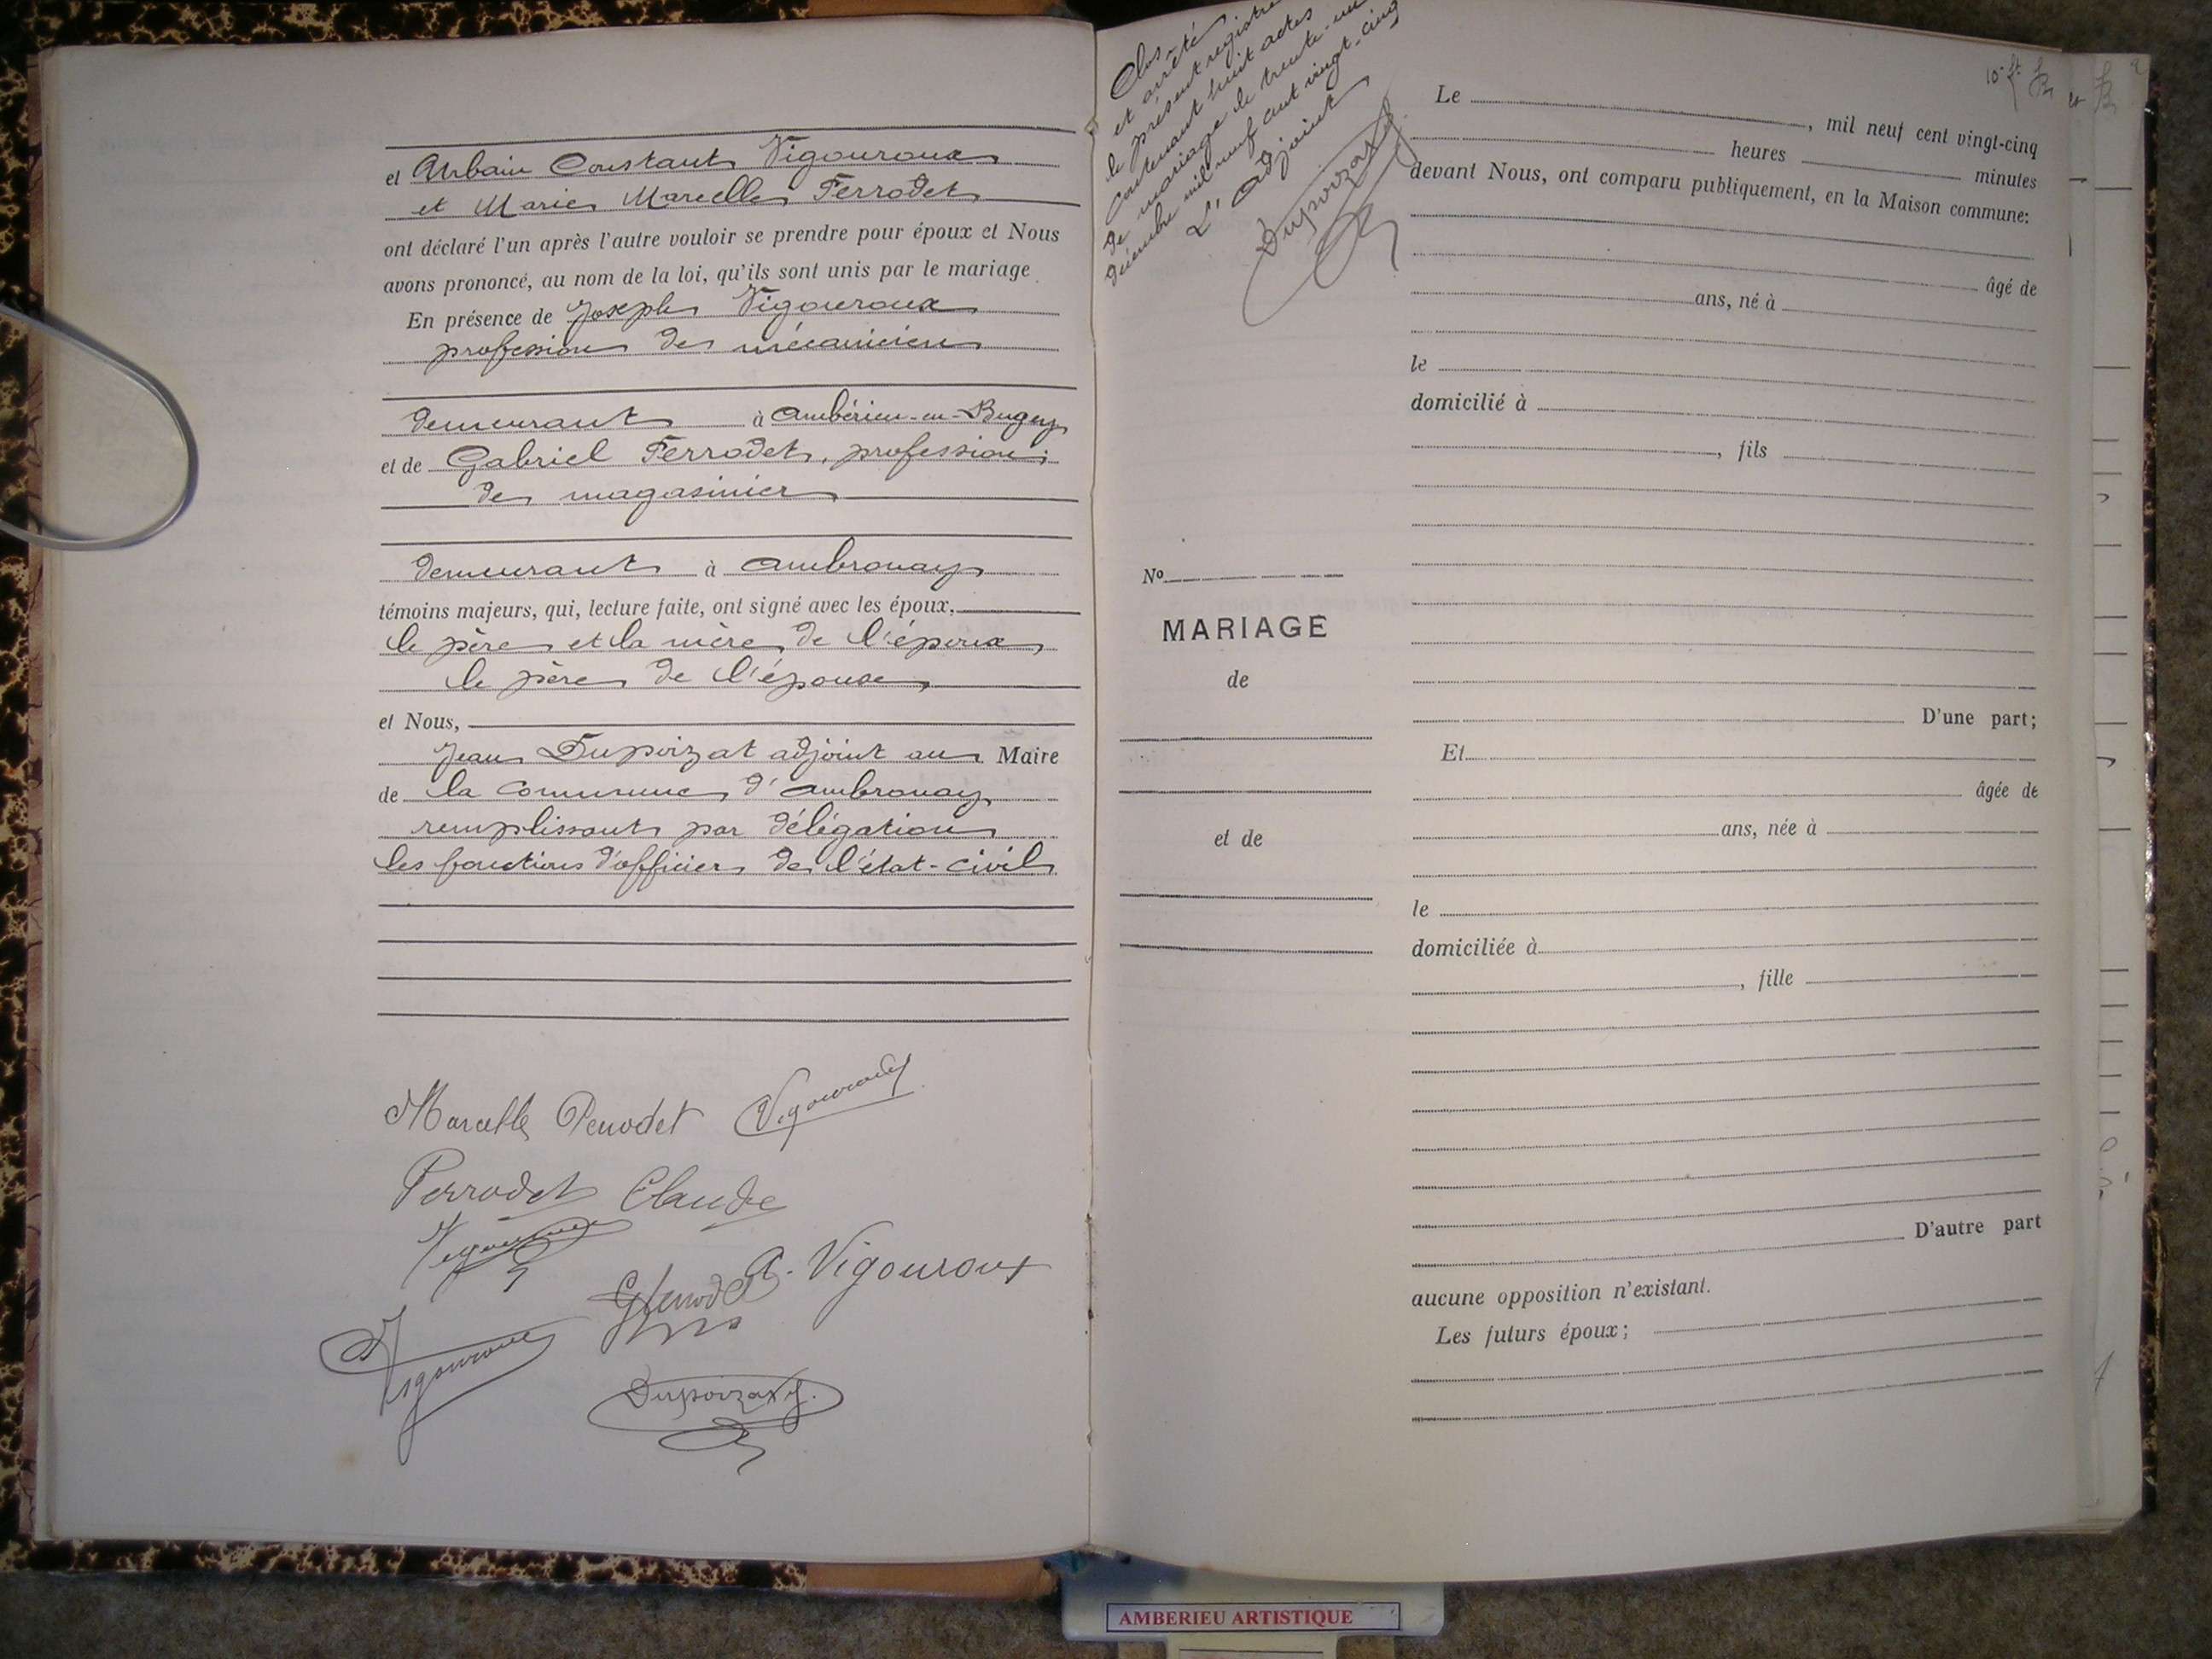 et Urbain Constant Vigouroux
et Marie Marcelle Perrodet
ont déclaré l'un après l'autre vouloir se prendre pour époux et Nous
avons prononcé, au nom de la loi, qu'ils sont unis par le mariage.
En présence de Joseph Vigouroux
profession de mécanicien
demeurant à Ambérieu-en-Bugey
et de Gabriel Perrodet, profession
de magasinier
demeurant à Ambronay
témoins majeurs, qui, lecture faite, ont signé avec les époux,
le père et la mère de l'époux
le père de l'épouse
et Nous,
Jean Dupoizat adjoint au Maire
de la Commune d'Ambronay
remplissant par délégation
les fonctions d'officier de l'état-civil
Marcelle Perrodet Vigouroux
Perrodet Claude
Vigouroux
A. Vigouroux
G Perrodet
Vigouroux
Dupoizat J.
Clos
et arrêté
le présent registre
contenant huit actes
de mariage le trente-un
décembre mil neuf cent vingt-cinq
L'Adjoint
Dupoizat J.
No
MARIAGE
de
et de
Le , mil neuf cent vingt-cinq
heures minutes
devant Nous, ont comparu publiquement, en la Maison commune:
âgé de
ans, né à
le
domicilié à
, fils
D'une part;
Et
âgée de
ans, née à
le
domiciliée à
, fille
D'autre part
aucune opposition n'existant.
Les futurs époux;
AMBERIEU ARTISTIQUE